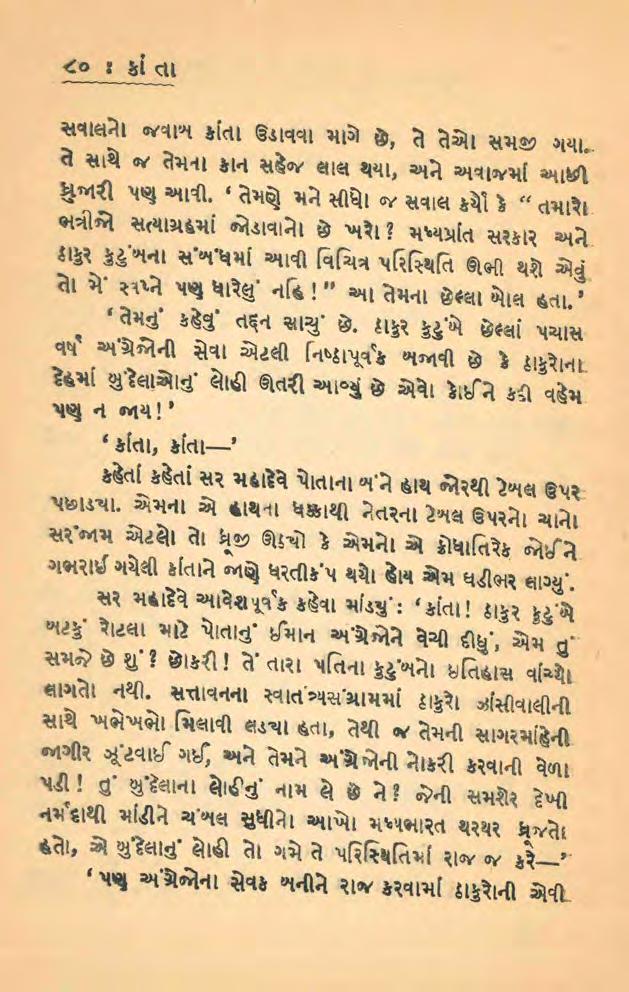 ૮૦ : કાંતા
સવાલનો જવાબ કાંતા ઉડાવવા માગે છે, તે તેઓ સમજી ગયા.
તે સાથે જ તેમના કાન સહેજ લાલ થયા, અને અવાજમાં આછી
ધ્રુજારી પણ આવી. ‘ તેમણે મને સીધો જ સવાલ કર્યો કે “ તમારો
ભત્રીજો સત્યાગ્રહમાં જોડાવાનો છે ખરો? મધ્યપ્રાંત સરકાર અને
ઠાકુર કુટુંબના સંબંધમાં આવી વિચિત્ર પરિસ્થિતિ ઊભી થશે એવું
તો મેં સ્વપ્ને પણ ધારેલું નહિ ! ” આ તેમના છેલ્લા બોલ હતા.’
‘ તેમનું કહેવું તદ્દન સાચું છે. ઠાકુર કુટુંબે છેલ્લાં પચાસ
વર્ષ અંગ્રેજોની સેવા એટલી નિષ્ઠાપૂર્વક બજાવી છે કે ઠાકુરોના
દેહમાં બુંદેલાઓનું લોહી ઊતરી આવ્યું છે એવો કોઈને કદી વહેમ
પણ ન જાય ! ’
‘ કાંતા, કાંતા—’
કહેતાં કહેતાં સર મહાદેવે પોતાના બંને હાથ જોરથી ટેબલ ઉપર
પછાડ્યા. એમના એ હાથના ધક્કાથી નેતરના ટેબલ ઉપરનો ચાનો
સરંજામ એટલો તો ધ્રૂજી ઊઠ્યો કે એમનો એ ક્રોધાતિરેક જોઈને
ગભરાઈ ગયેલી કાંતાને જાણે ધરતીકંપ થયો હોય એમ ઘડીભર લાગ્યું.
સર મહાદેવે આવેશપૂર્વક કહેવા માંડ્યું : ‘ કાંતા ! ઠાકુર કુટુંબે
બટકું રોટલા માટે પોતાનું ઈમાન અંગ્રેજોને વેચી દીધું, એમ તું
સમજે છે શું ? છોકરી ! તેં તારા પતિના કુટુંબનો ઇતિહાસ વાંચ્યો
લાગતો નથી. સત્તાવનના સ્વાતંત્ર્યસંગ્રામમાં ઠાકુરો ઝાંસીવાલીની
સાથે ખભેખભો મિલાવી લડ્યા હતા, તેથી જ તેમની સાગરમાંહેની
જાગીર ઝૂંટવાઈ ગઈ, અને તેમને અંગ્રેજોની નોકરી કરવાની વેળા
પડી ! તું બુંદેલાના લોહીનું નામ લે છે ને ? જેની સમશેર દેખી
નર્મદાથી માંડીને ચંબલ સુધીનો આખો મધ્યભારત થરથર ધ્રૂજતો
હતો, એ બુંદેલાનું લોહી તો ગમે તે પરિસ્થિતિમાં રાજ જ કરે—’
‘ પણ અંગ્રેજોના સેવક બનીને રાજ કરવામાં ઠાકુરોની એવી